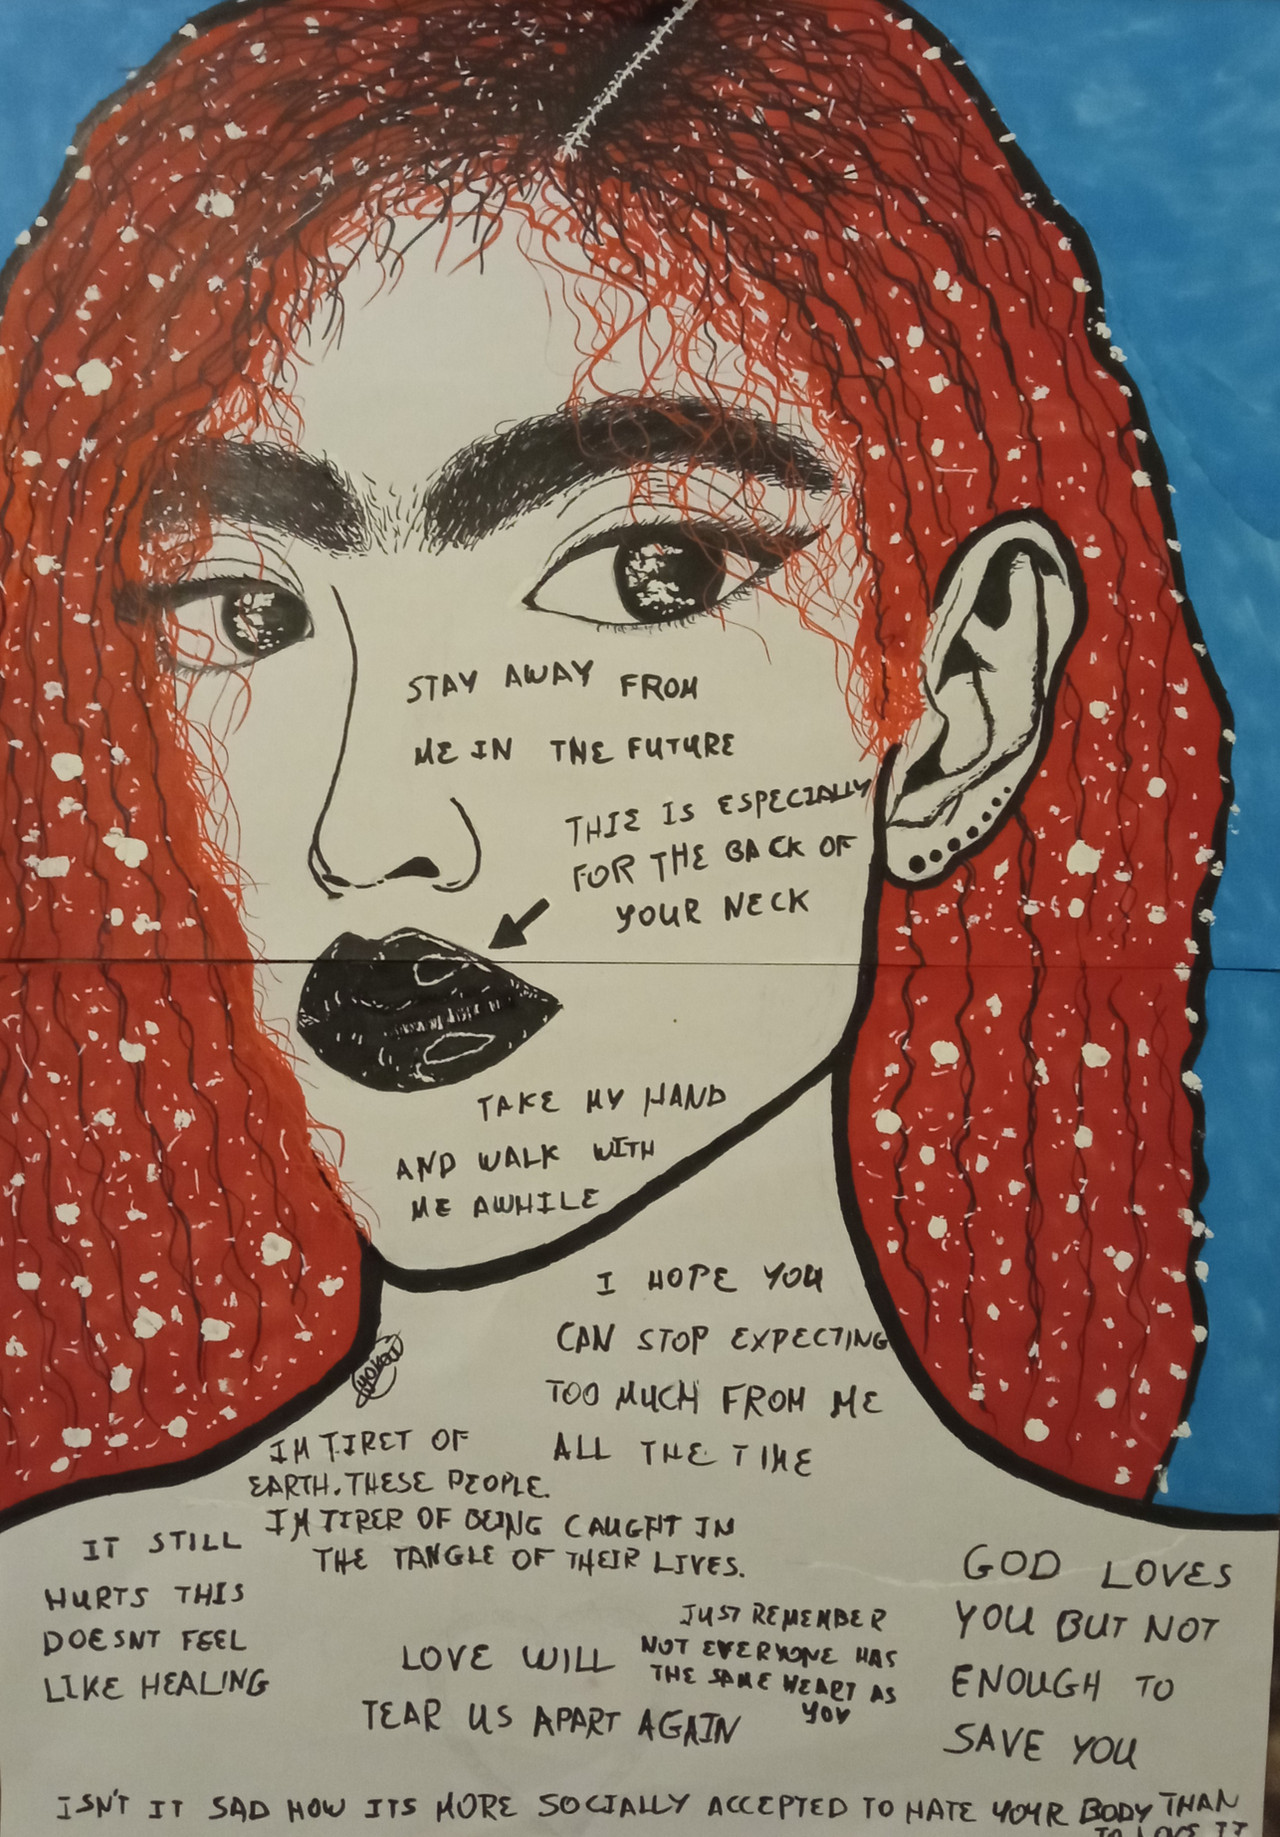 STAY AWAY FROM
ME IN THE FUTURE
THIE IS ESPECIALLY
FOR THE BACK OF
YOUR NECK
TAKE MY HAND
AND WALK WITH
ME AWHILE
I HOPE YOU
CAN STOP EXPECTING
TOO MUCH FROM ME
ALL THE TIME
IM TIRET OF
EARTH. THESE PEOPLE.
IM TIRER OF BEING CAUGHT IN
THE TANGLE OF THEIR LIVES.
IT STILL
HURTS THIS
DOESNT FEEL
LIKE HEALING
LOVE WILL
TEAR US APART AGAIN
JUST REMEMBER
NOT EVERYONE HAS
THE SAME HEART AS
YOU
GOD LOVES
YOU BUT NOT
ENOUGH TO
SAVE YOU
ISN'T IT SAD HOW ITS MORE SOCIALLY ACCEPTED TO HATE YOUR BODY THAN
TO LOVE IT